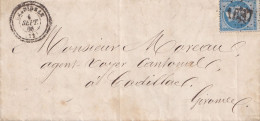 SEPT.
Monsieur Moreau
agent Voyer Cantonal
à Cadillac
Gironde